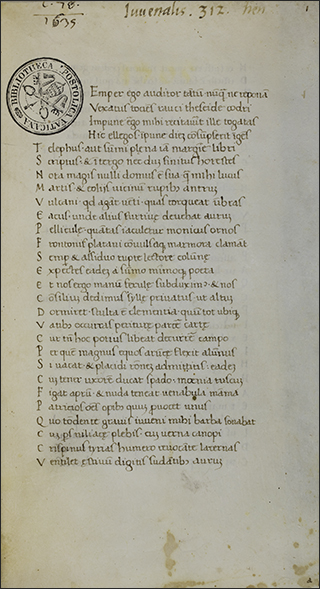 C. 78.
1635
Iuuenalis. 312.
1
BIBLIOTHECA APOSTOLICA VATICANA
Emper ego auditor
Vexatus rauci theseide codri
Impune ego mihi recitauit ille togatas
Hic elegos
T elephus aut sumi plena iā margine libri
S criptus & i tergo nec dū finitus horestes
N ota magis nulli domus ē sua q̄ mihi lucus
M artis & eoliis uicinū rupibus antrū
V ulcani qd agāt uēti quas torqueat ūbras
E acus unde alius furtiuę deuehat aurū
P ellicule quātas iaculetur monicus ornos
F rontonis platani cōuulsaq marmora clamāt
S emp & assiduo rupte lectore colūne
E xpectes eadē a sumo minoq poeta
E t nos ergo manū ferule subduxim & nos
C ōsiliū dedimus syllę priuatus ut altū
D ormiret stulta ē clementia quū tot ubiq
V atib occurras periturę parcere carte
C ur tn̄ hoc potius libeat decurrere campo
P er quē magnus equos arūce flexit alūnus
S i uacat & placidi rōnez admittitis edā
C uz tener uxorē ducat spado meuia tuscū
F igat aprū & nuda teneat uenabula māma
P atricios oēs opibus quū prouocet unus
Q uo tōdente grauis iuueni mihi barba sonabat
C uz ps niliacę plebis cuz uerna canopi
C rispinus tyrias humero reuocāte lacernas
V entilet ęstiuū digitis sudātib aurū